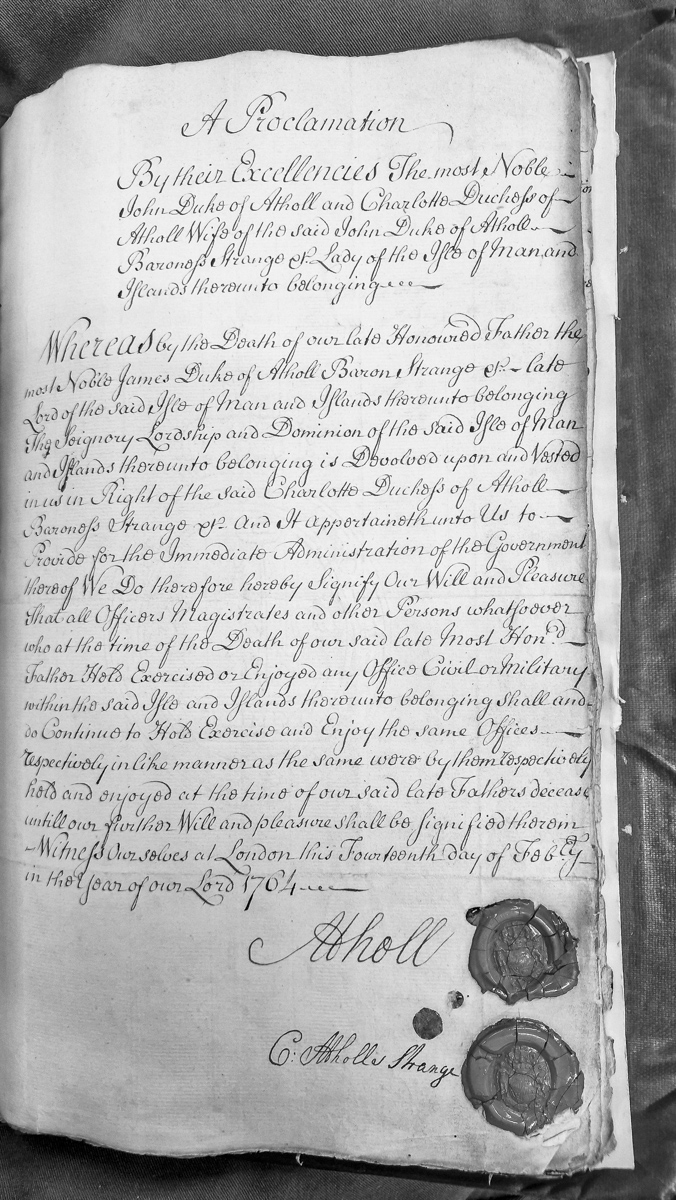 A Proclamation
By their Excellencies The most Noble
John Duke of Atholl and Charlotte Duchess of
Atholl Wife of the said John Duke of Atholl
Baroness Strange &c. Lady of the Isle of Man and
Islands thereunto belonging
Whereas by the Death of our late Honoured Father the
most Noble James Duke of Atholl Baron Strange &c. late
Lord of the said Isle of Man and Islands thereunto belonging
The Seignory Lordship and Dominion of the said Isle of Man
and Islands thereunto belonging is Devolved upon and Vested
in us in Right of the said Charlotte Duchess of Atholl
Baroness Strange &c. And It appertaineth unto Us to
Provide for the Immediate Administration of the Government
thereof We Do therefore hereby Signify Our Will and Pleasure
That all Officers Magistrates and other Persons whatsoever
who at the time of the Death of our said late Most Hon.d
Father Held Exercised or Enjoyed any Office Civil or Military
within the said Isle and Islands thereunto belonging shall and
do Continue to Hold Exercise and Enjoy the same Offices
respectively in like manner as the same were by them respectively
held and enjoyed at the time of our said late Fathers decease
untill our further Will and pleasure shall be signified therein
Witness Ourselves at London this Fourteenth day of Feb.ry
in the Year of our Lord 1764
Atholl
C: Atholl & Strange